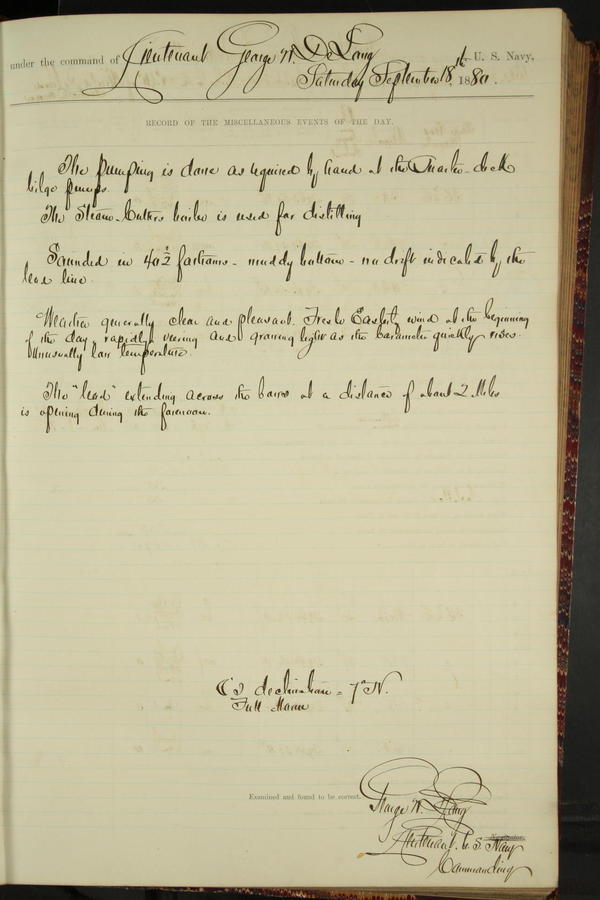 under the command of Lieutenant George W. De Long U. S. Navy,
Saturday September 18th, 1880.
RECORD OF THE MISCELLANEOUS EVENTS OF THE DAY.
The pumping is done as required by hand at the Quarter-deck
bilge pumps.
The Steam-Cutters boiler is used for distilling
Sounded in 40½ fathoms - muddy bottom - no drift indicated by the
lead line.
Weather generally clear and pleasant. Fresh Easterly wind at the beginning
of the day, rapidly veering and growing light as the barometer quickly rises.
Unusually low temperature.
The "lead" extending across the bows at a distance of about 2 Miles
is opening during the forenoon.
☾'s declination = 7° N.
Full Moon
Examined and found to be correct.
George W. De Long
Lieutenant. U. S. Navy
Navigator.
Commanding